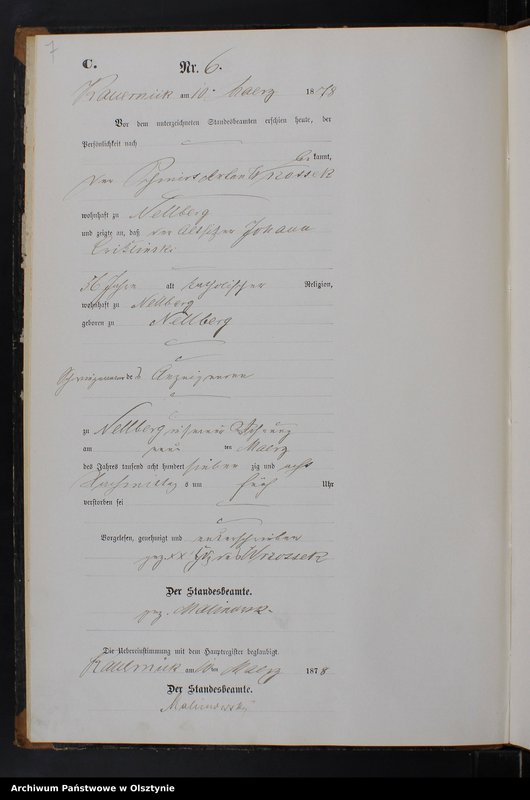 7
C.
Nr. 6.
Kauernick am 10. Maerz 1878
Vor dem unterzeichneten Standesbeamten erschien heute, der
Persönlichkeit nach
be kannt,
der Wrossek
wohnhaft zu Nellberg
und zeigte an, daß der Johann
36 Jahre alt katholischer Religion,
wohnhaft zu Nellberg
geboren zu Nellberg
des
zu Nellberg in seiner Wohnung
am neun ten Maerz
des Jahres tausend acht hundert sieben zig und acht
Nachmittags um fünf Uhr
verstorben sei
Vorgelesen, genehmigt und unterschrieben
gez. xxx Wrossek
Der Standesbeamte.
gez. Malinowski
Die Uebereinstimmung mit dem Hauptregister beglaubigt.
Kauernick am 10ten Maerz 1878
Der Standesbeamte.
Malinowski
Archiwum Państwowe w Olsztynie